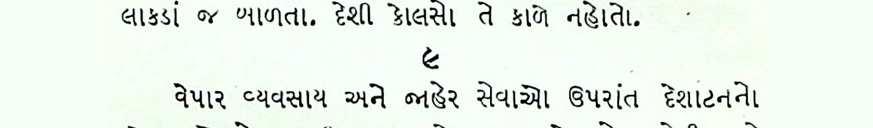 લાકડાં જ બાળતા. દેશી કોલસો તે કાળે નહોતો.
૯
વેપાર વ્યવસાય અને જાહેર સેવાઓ ઉપરાંત દેશાટનનો